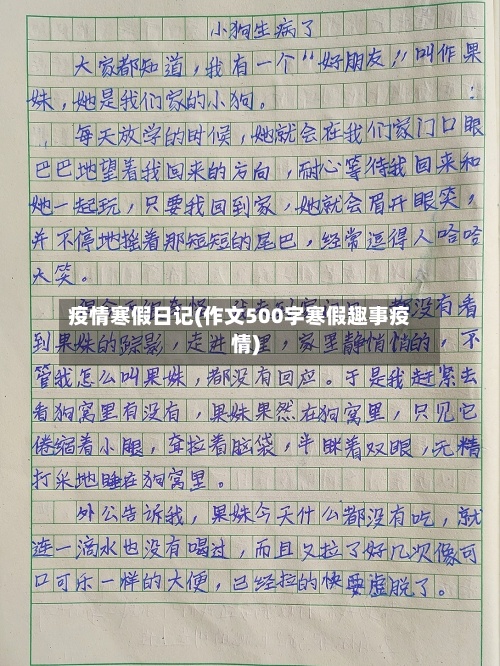 小狗生病了
大家都知道，我有一个“好朋友”叫作果
妹，她是我们家的小狗。
每天放学的时候，她就会在我们家门口眼
巴巴地望着我回来的方向，耐心等待我回来和
她一起玩，只要我回到家，她就会眉开眼笑，
并不停地摇着那短短的尾巴，经常逗得人哈哈
大笑。
都没有看
疫情寒假日记(作文500字寒假趣事疫
情)
到果妹的踪影，走进 里，家里静悄悄的，不
管我怎么叫果妹，都没有回应。于是我赶紧去
看狗窝里有没有，果妹果然在狗窝里，只见它
倦缩着小腿，耷拉着脑袋，半眯着双眼，无精
打采地睡在狗窝里。
外公告诉我，果妹今天什么都没有吃，就
连一滴水也没有喝过，而且又拉了好几次像可
口可乐一样的大便，已经拉的快要虚脱了。